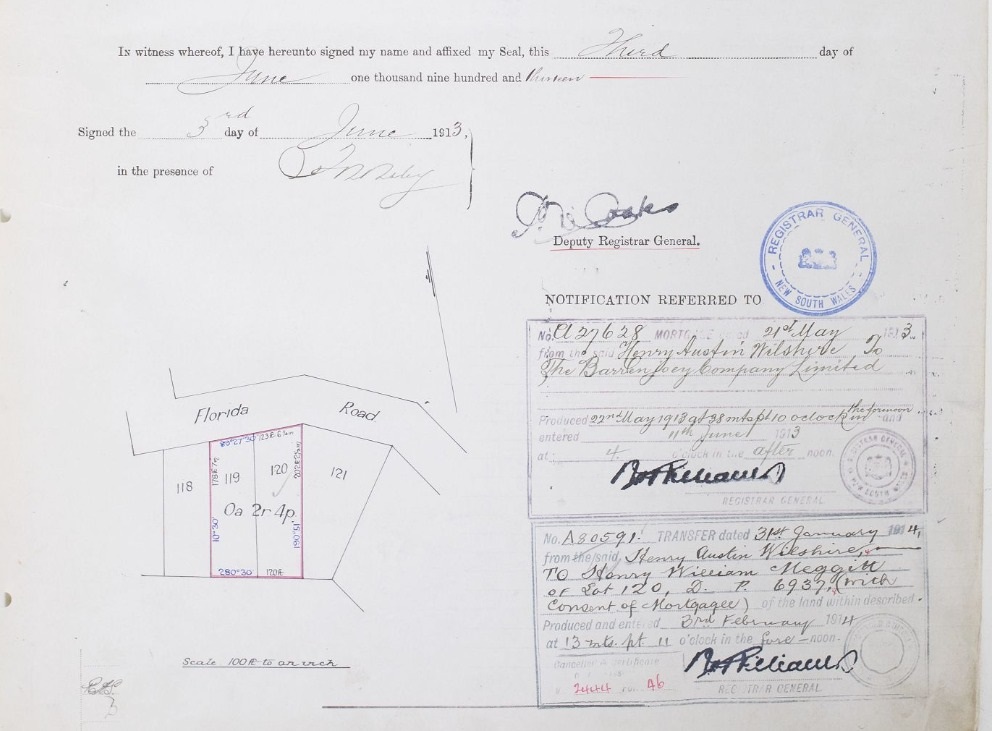 In witness whereof, I have hereunto signed my name and affixed my Seal, this Third day of
June one thousand nine hundred and thirteen
Signed the 3rd day of June 1913.
in the presence of
Deputy Registrar General.
REGISTRAR GENERAL
NEW SOUTH WALES
NOTIFICATION REFERRED TO
No. A 27628 MORTGAGE dated 21st May 1913.
from the said Henry Austin Wilshire To
The Barrenjoey Company Limited
Produced 22nd May 1913 at 38 mts pt 10 o'clock in the forenoon and
entered 11th June 1913
at 4 o'clock in the after noon.
REGISTRAR GENERAL
No. A80591. TRANSFER dated 31st January 1914,
from the said Henry Austin Wilshire,
TO Henry William Meggitt
of Lot 120, D. P. 6937, (with
Consent of Mortgagee) of the land within described.
Produced and entered 3rd February 1914
at 13 mts. pt 11 o'clock in the fore-noon.
REGISTRAR GENERAL
Florida Road
118
119
120
121
0a 2r 4p
10°30'
280°30'
Scale 100ft to an inch